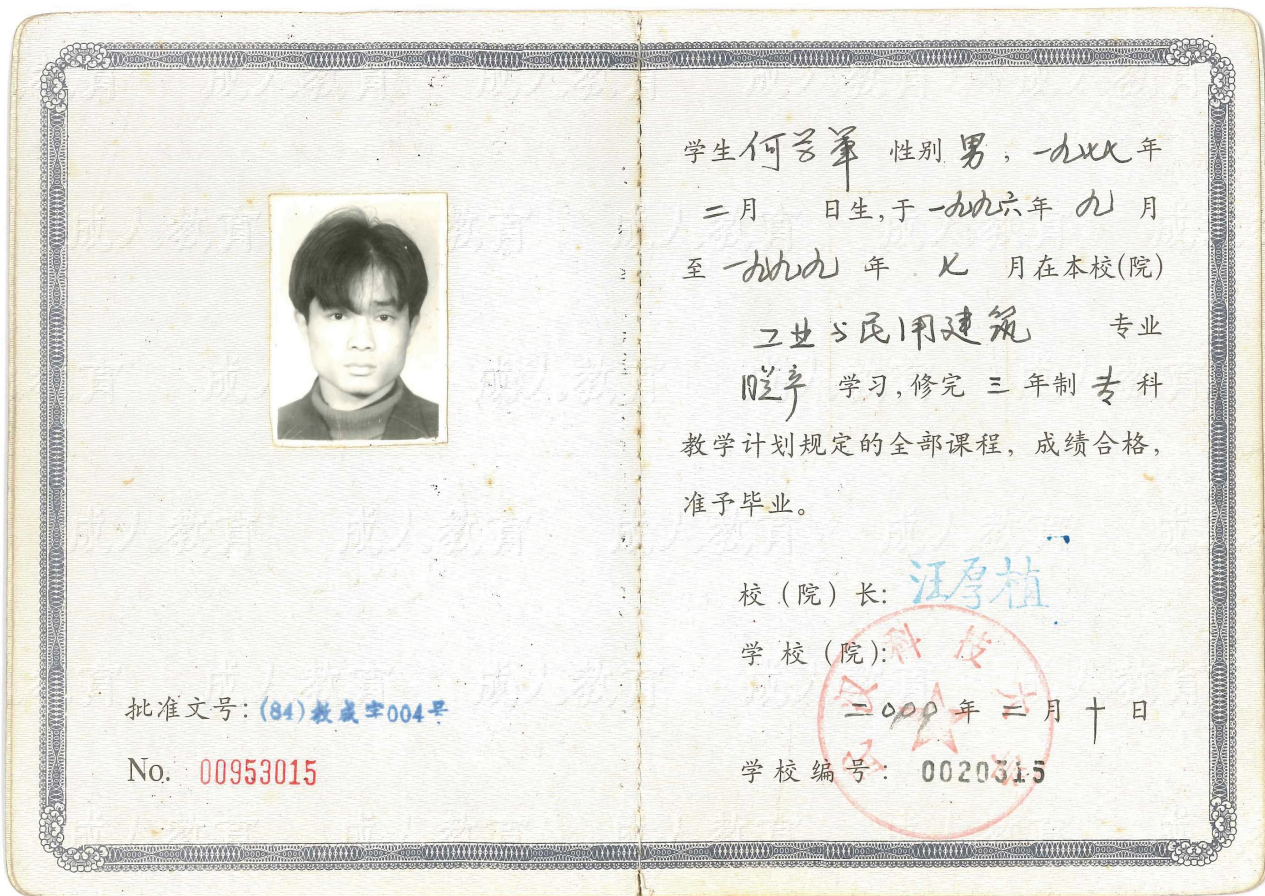 批准文号：(84)教成字004号
No. 00953015
学生何学军 性别 男，一九七七年
二月 日生，于一九九六年 九 月
至一九九九 年 七 月在本校(院)
工业与民用建筑 专业
脱产 学习，修完 三 年制 专 科
教学计划规定的全部课程，成绩合格，
准予毕业。
校（院）长：汪厚植
学 校（院）：
武汉科技大学
二000年 二 月 十 日
学校编号：0020315
成人教育